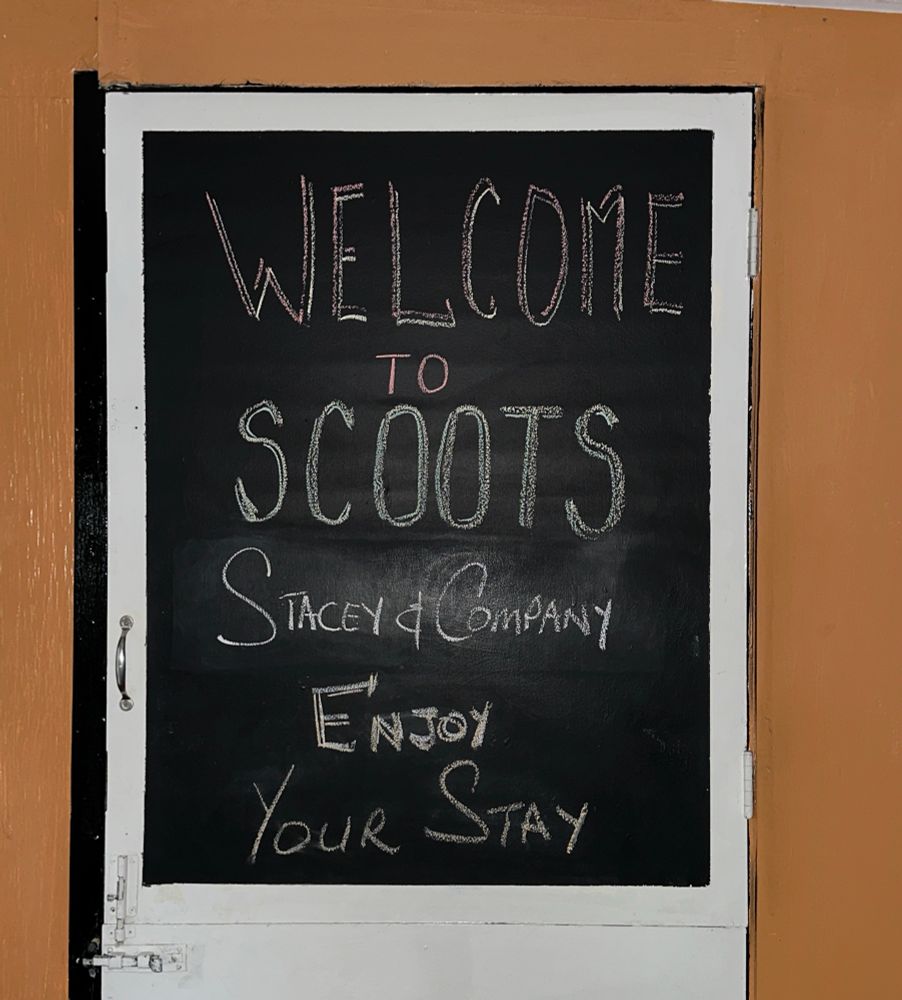 WELCOME
TO
SCOOTS
STACEY & COMPANY
ENJOY
YOUR STAY